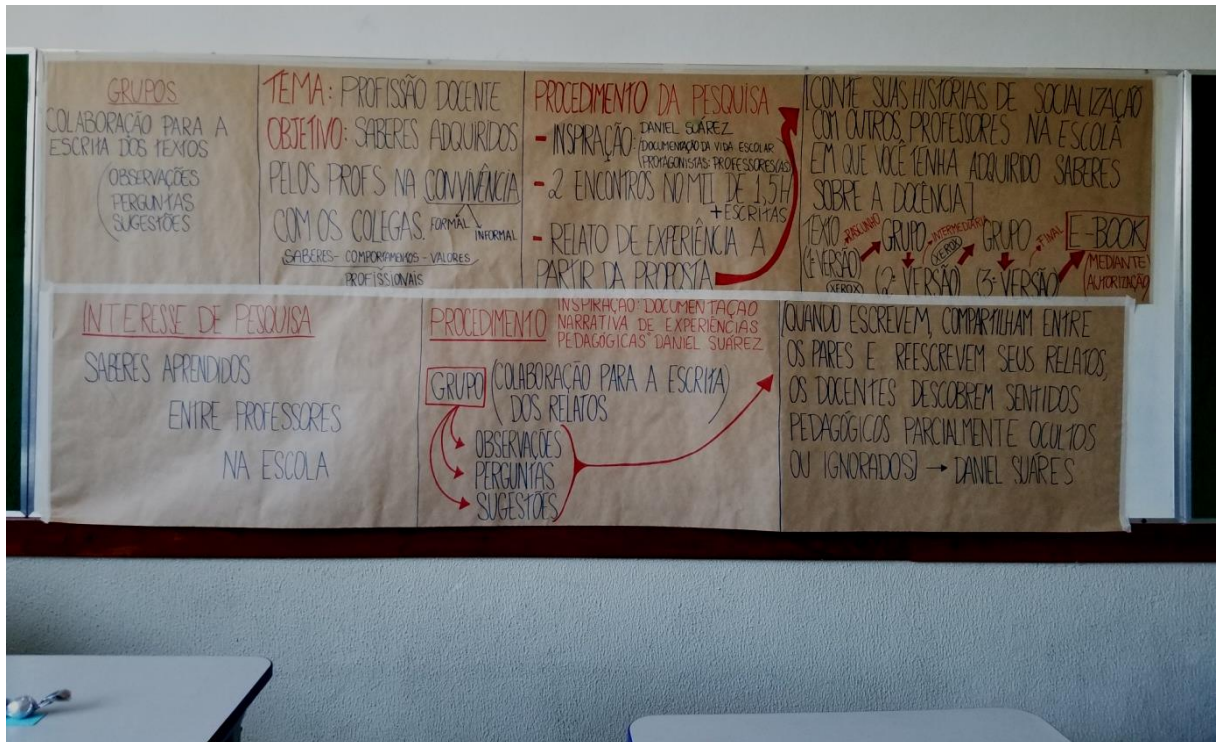 GRUPOS
COLABORAÇÃO PARA A
ESCRITA DOS TEXTOS
OBSERVAÇÕES
PERGUNTAS
SUGESTÕES
TEMA: PROFISSÃO DOCENTE
OBJETIVO: SABERES ADQUIRIDOS
PELOS PROFS NA CONVIVÊNCIA
COM OS COLEGAS. FORMAL INFORMAL
SABERES - COMPORTAMENTOS - VALORES
PROFISSIONAIS
PROCEDIMENTO DA PESQUISA
- INSPIRAÇÃO: DANIEL SUÁREZ
DOCUMENTAÇÃO DA VIDA ESCOLAR
(PROTAGONISTAS: PROFESSORES(AS)
- 2 ENCONTROS NO MII DE 1,5H
+ ESCRITAS
- RELATO DE EXPERIÊNCIA A
PARTIR DA PROPOSTA
[CONTE SUAS HISTÓRIAS DE SOCIALIZAÇÃO
COM OUTROS PROFESSORES NA ESCOLA
EM QUE VOCÊ TENHA ADQUIRIDO SABERES
SOBRE A DOCÊNCIA]
TEXTO RASCUNHO GRUPO INTERMEDIÁRIA GRUPO FINAL E-BOOK
(1ª VERSÃO) XEROX (2ª VERSÃO) XEROX (3ª VERSÃO) (MEDIANTE
AUTORIZAÇÃO)
INTERESSE DE PESQUISA
SABERES APRENDIDOS
ENTRE PROFESSORES
NA ESCOLA
PROCEDIMENTO
INSPIRAÇÃO: DOCUMENTAÇÃO
NARRATIVA DE EXPERIÊNCIAS
PEDAGÓGICAS" DANIEL SUÁREZ
GRUPO (COLABORAÇÃO PARA A ESCRITA)
DOS RELATOS
OBSERVAÇÕES
PERGUNTAS
SUGESTÕES
[QUANDO ESCREVEM, COMPARTILHAM ENTRE
OS PARES E REESCREVEM SEUS RELATOS,
OS DOCENTES DESCOBREM SENTIDOS
PEDAGÓGICOS PARCIALMENTE OCULTOS
OU IGNORADOS] → DANIEL SUÁRES